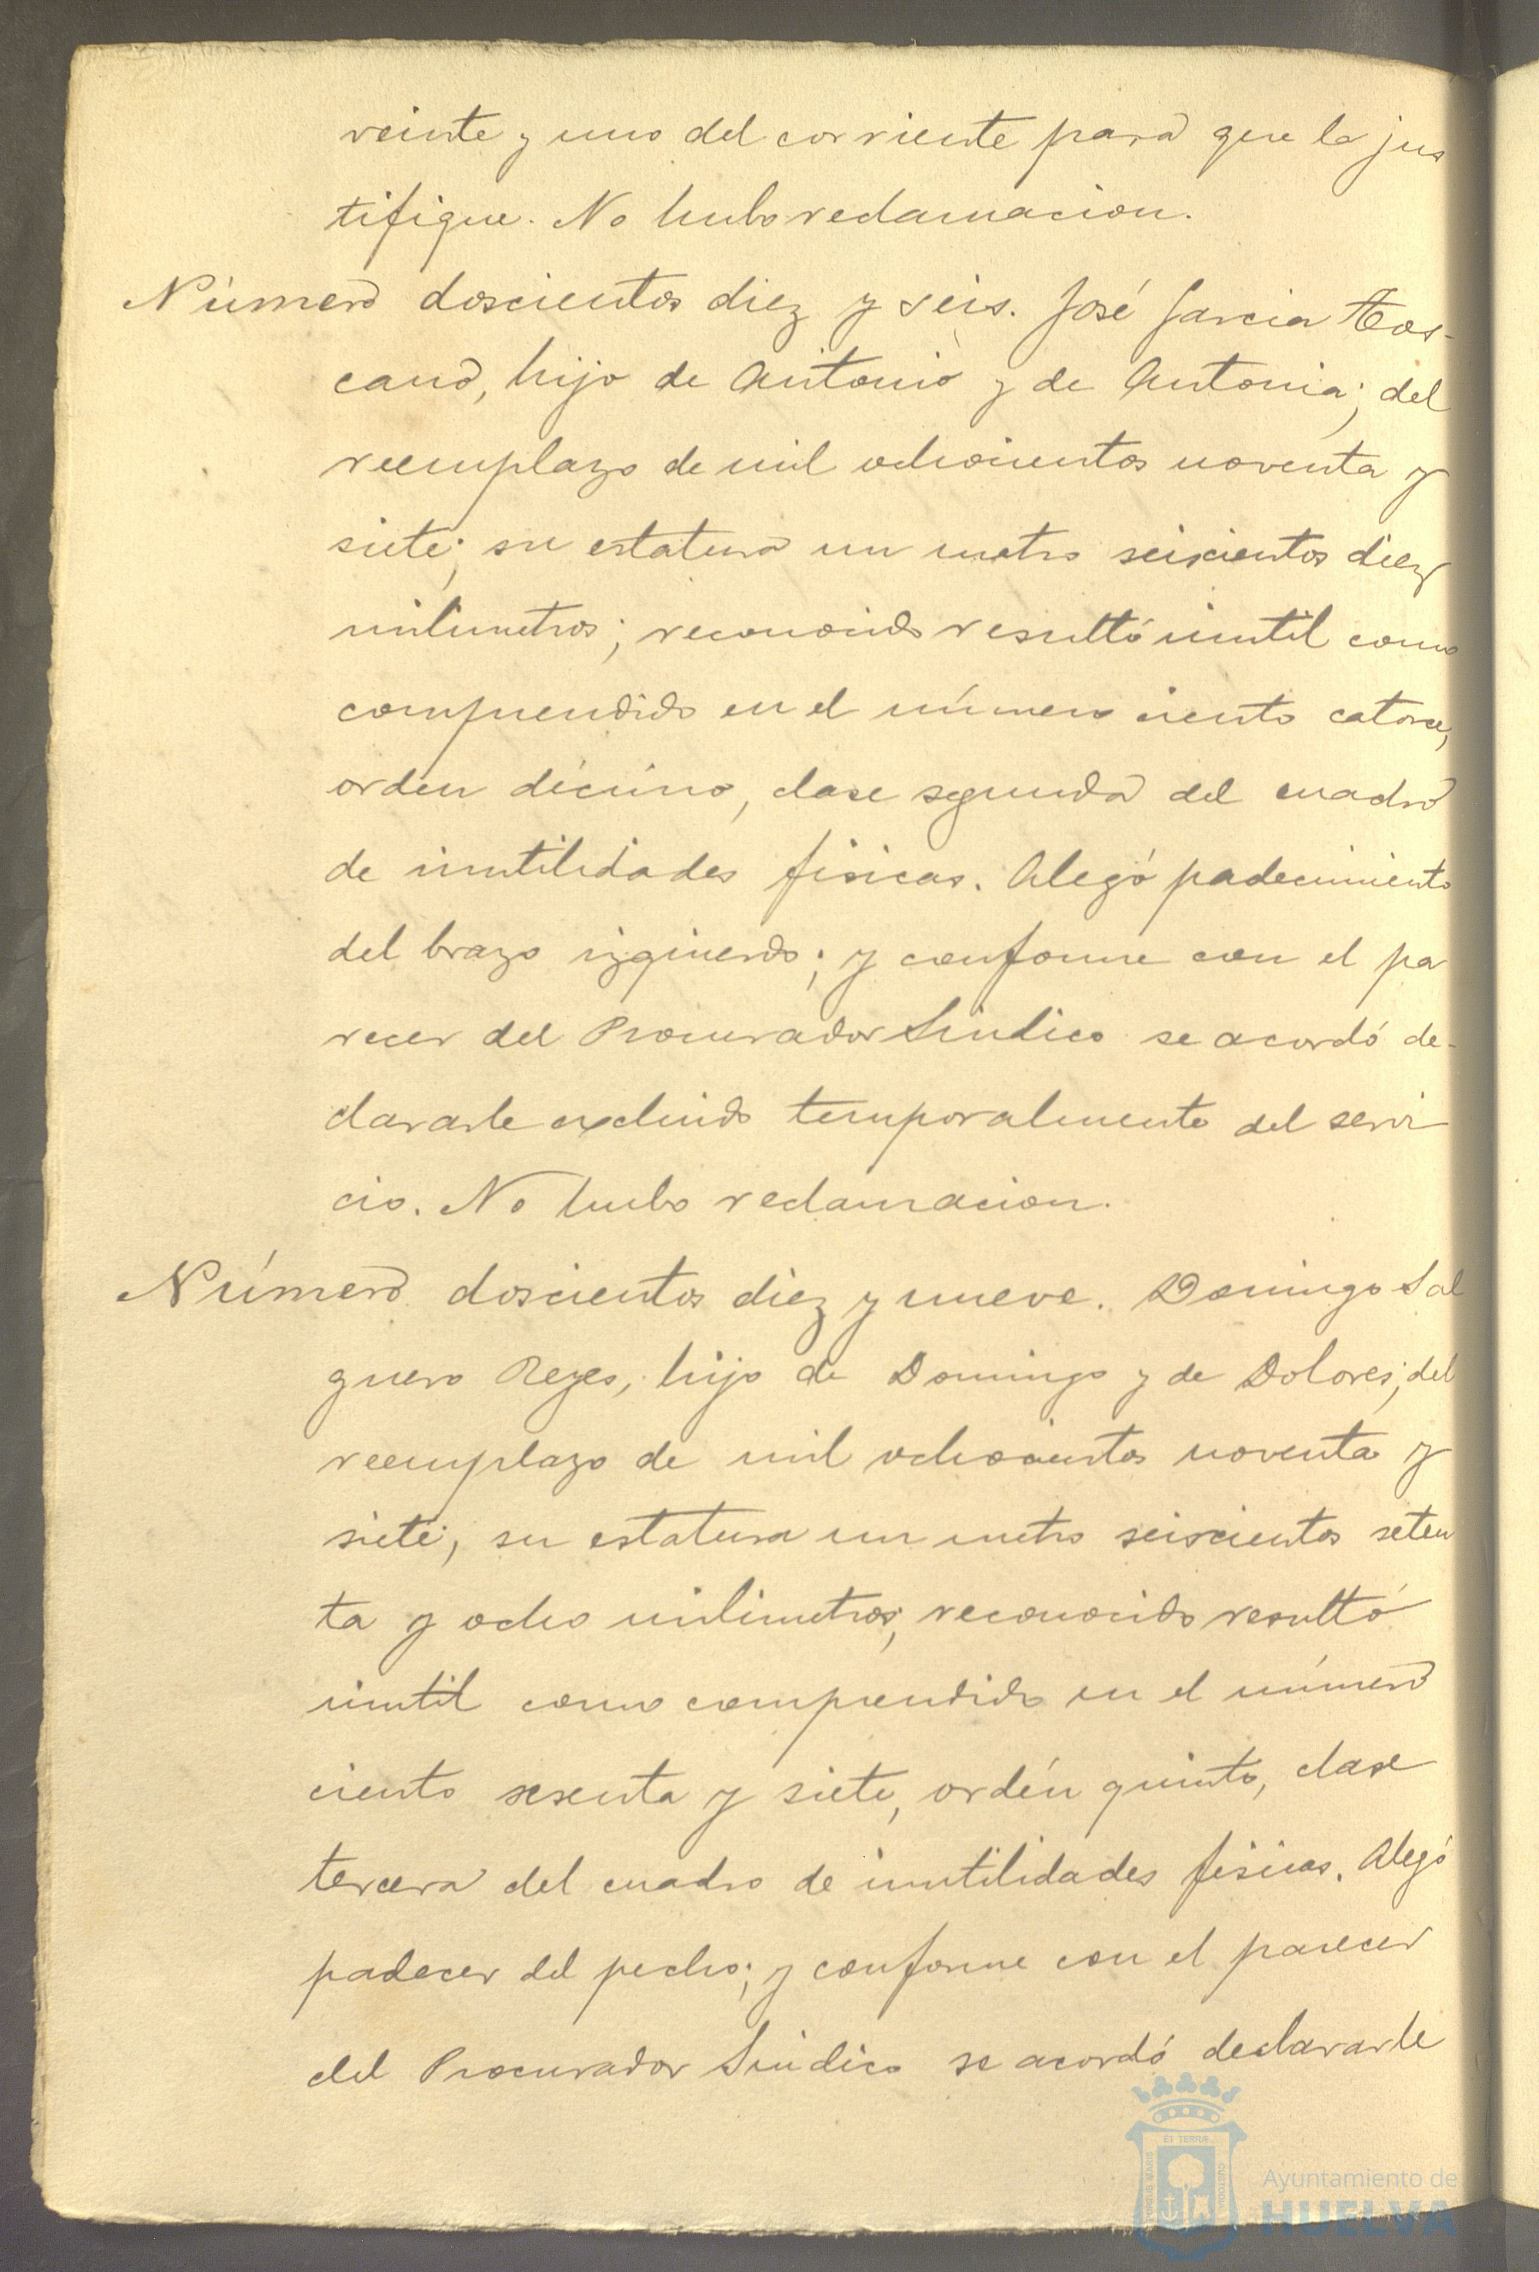 veinte y uno del corriente para que la jus
tifique. No hubo reclamacion.
Número doscientos diez y seis. José Garcia Tos-
cano, hijo de Antonio y de Antonia; del
reemplazo de mil ochocientos noventa y
siete; su estatura un metro seiscientos diez
milimetros; reconocido resultó inutil como
comprendido en el número ciento catorce,
orden décimo, clase segunda del cuadro
de inutilidades fisicas. Alegó padecimiento
del brazo izquierdo; y conforme con el pa
recer del Procurador Sindico se acordó de-
clararle excluido temporalmente del servi
cio. No hubo reclamacion.
Número doscientos diez y nueve. Domingo Sal
guero Reyes, hijo de Domingo y de Dolores; del
reemplazo de mil ochocientos noventa y
siete; su estatura un metro seiscientos seten
ta y ocho milimetros; reconocido resultó
inutil como comprendido en el número
ciento sesenta y siete, ordén quinto, clase
tercera del cuadro de inutilidades fisicas. Alegó
padecer del pecho; y conforme con el parecer
del Procurador Sindico se acordó declararle
Ayuntamiento de
HUELVA